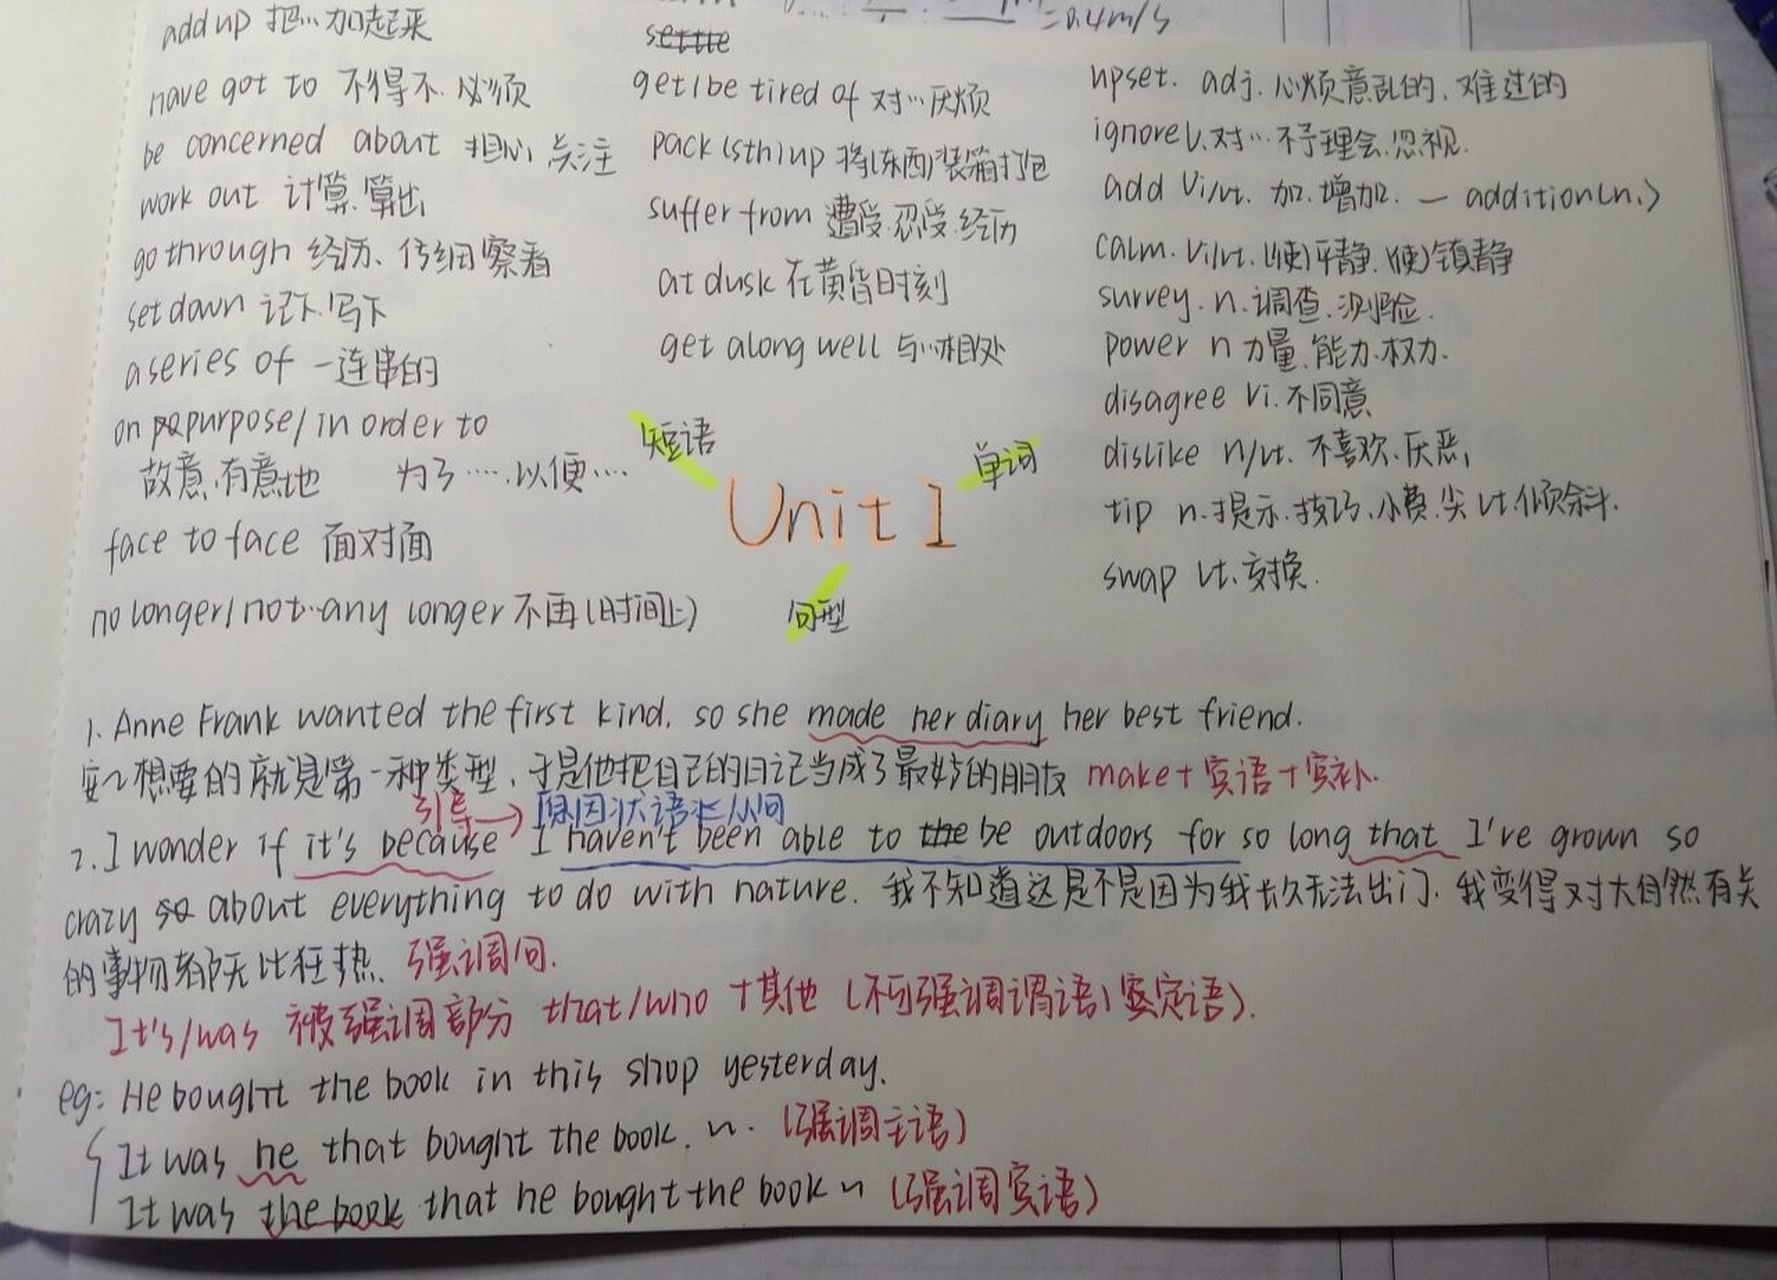 add up 把…加起来
have got to 不得不.必须
be concerned about 担心,关注
work out 计算.算出
go through 经历、仔细察看
set down 记下.写下
a series of 一连串的
on purpose/in order to
故意,有意地 为了….以便…
face to face 面对面
no longer/not…any longer 不再(时间上)
=0.4m/s
settle
get/be tired of 对…厌烦
pack(sth)up 将(东西)装箱打包
suffer from 遭受.忍受.经历
at dusk 在黄昏时刻
get along well 与…相处
短语
Unit 1
单词
句型
upset. adj. 心烦意乱的、难过的
ignore v.对…不予理会.忽视.
add vi/vt. 加.增加. — addition(n.)
calm. vi/vt. (使)平静.(使)镇静
survey. n.调查.测验.
power n 力量.能力.权力.
disagree vi.不同意
dislike n/vt. 不喜欢.厌恶,
tip n.提示.技巧.小费.尖 vt.倾斜.
swap vt.交换.
1. Anne Frank wanted the first kind, so she made her diary her best friend.
安~想要的就是第一种类型,于是他把自己的日记当成了最好的朋友 make+宾语+宾补.
引导→原因状语从句
2. I wonder if it's because I haven't been able to the be outdoors for so long that I've grown so
crazy so about everything to do with nature. 我不知道这是不是因为我长久无法出门.我变得对大自然有关
的事物都无比狂热. 强调句.
It's/was 被强调部分 that/who +其他 (不可强调谓语,定语).
eg: He bought the book in this shop yesterday.
It was he that bought the book. ~. (强调主语)
It was the book that he bought the book ~ (强调宾语)